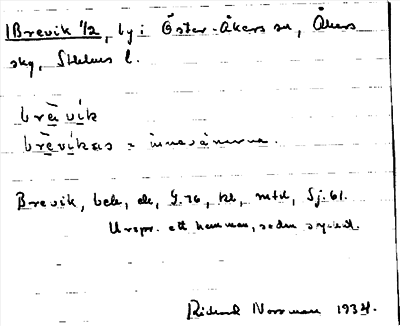 Brevik 1/2, by i Öster-Åkers sn, Åkers
skg, Sthlms l.
brèvik
brèvikas = innevånarna.
Brevik, beb, ek, G. 76, kl, mtd, Sj. 61.
Urspr. ett hemman, sedan styckat.
Richard Norrman 1934.